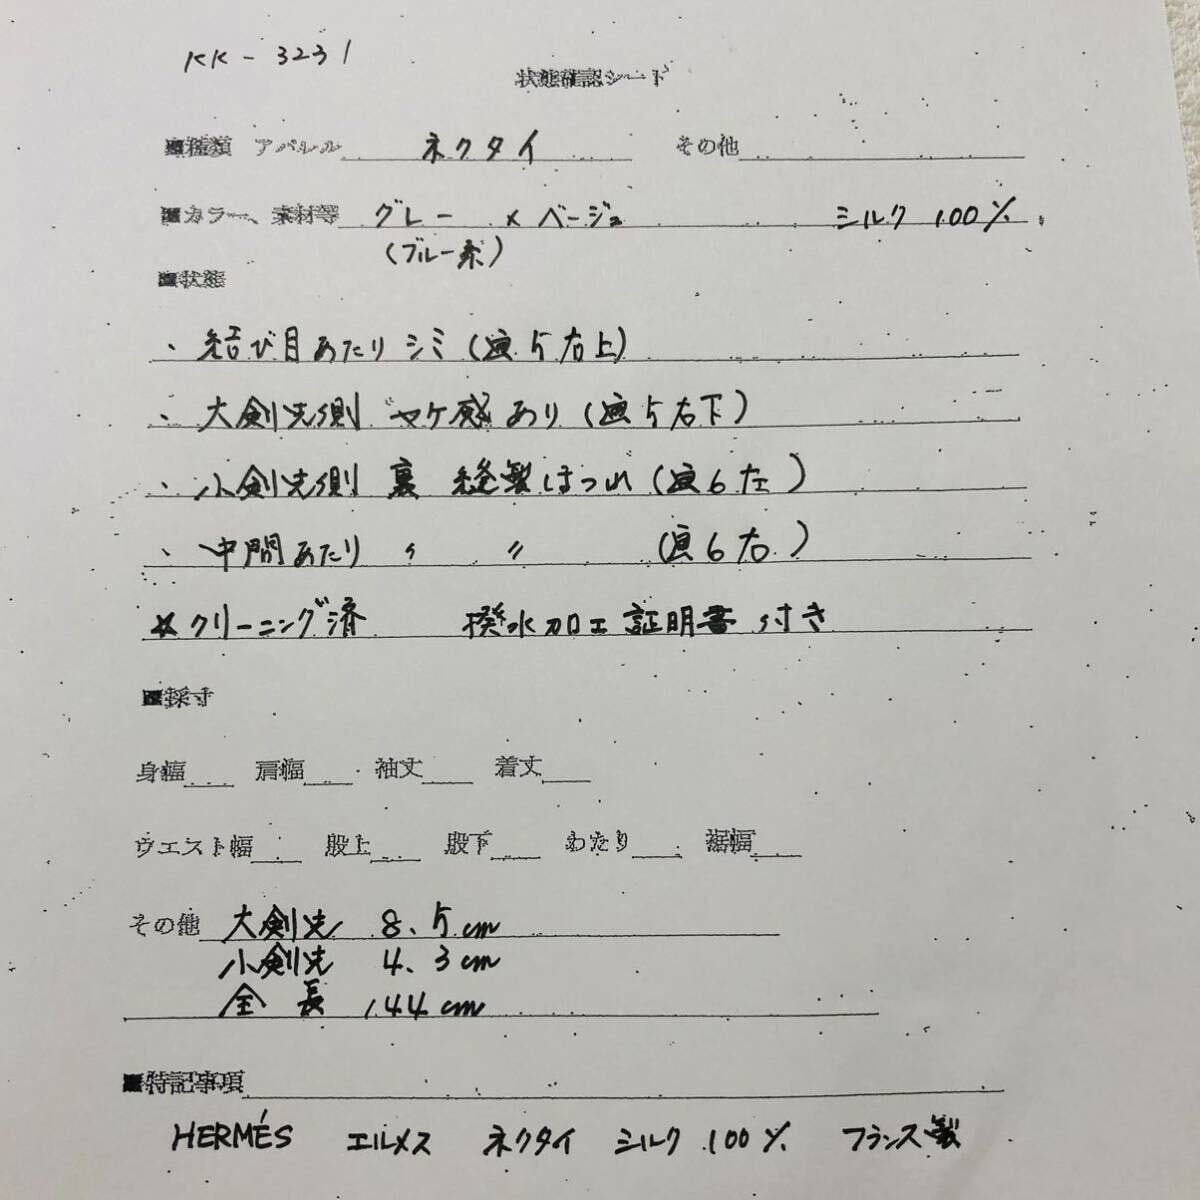 KK-3231
状態確認シート
■種類 アパレル ネクタイ その他
■カラー、素材等 グレー × ベージュ シルク 100%
(ブルー系)
■状態
・結び目あたり シミ (画5右上)
・大剣先側 ヤケ感あり (画5右下)
・小剣先側 裏 縫製ほつれ (画6左)
・中間あたり 〃 〃 (画6右)
☆クリーニング済 撥水加工証明書付き
■採寸
身幅 肩幅 袖丈 着丈
ウエスト幅 股上 股下 わたり 裾幅
その他 大剣先 8.5cm
小剣先 4.3cm
全長 144cm
■特記事項
HERMÉS エルメス ネクタイ シルク 100% フランス製